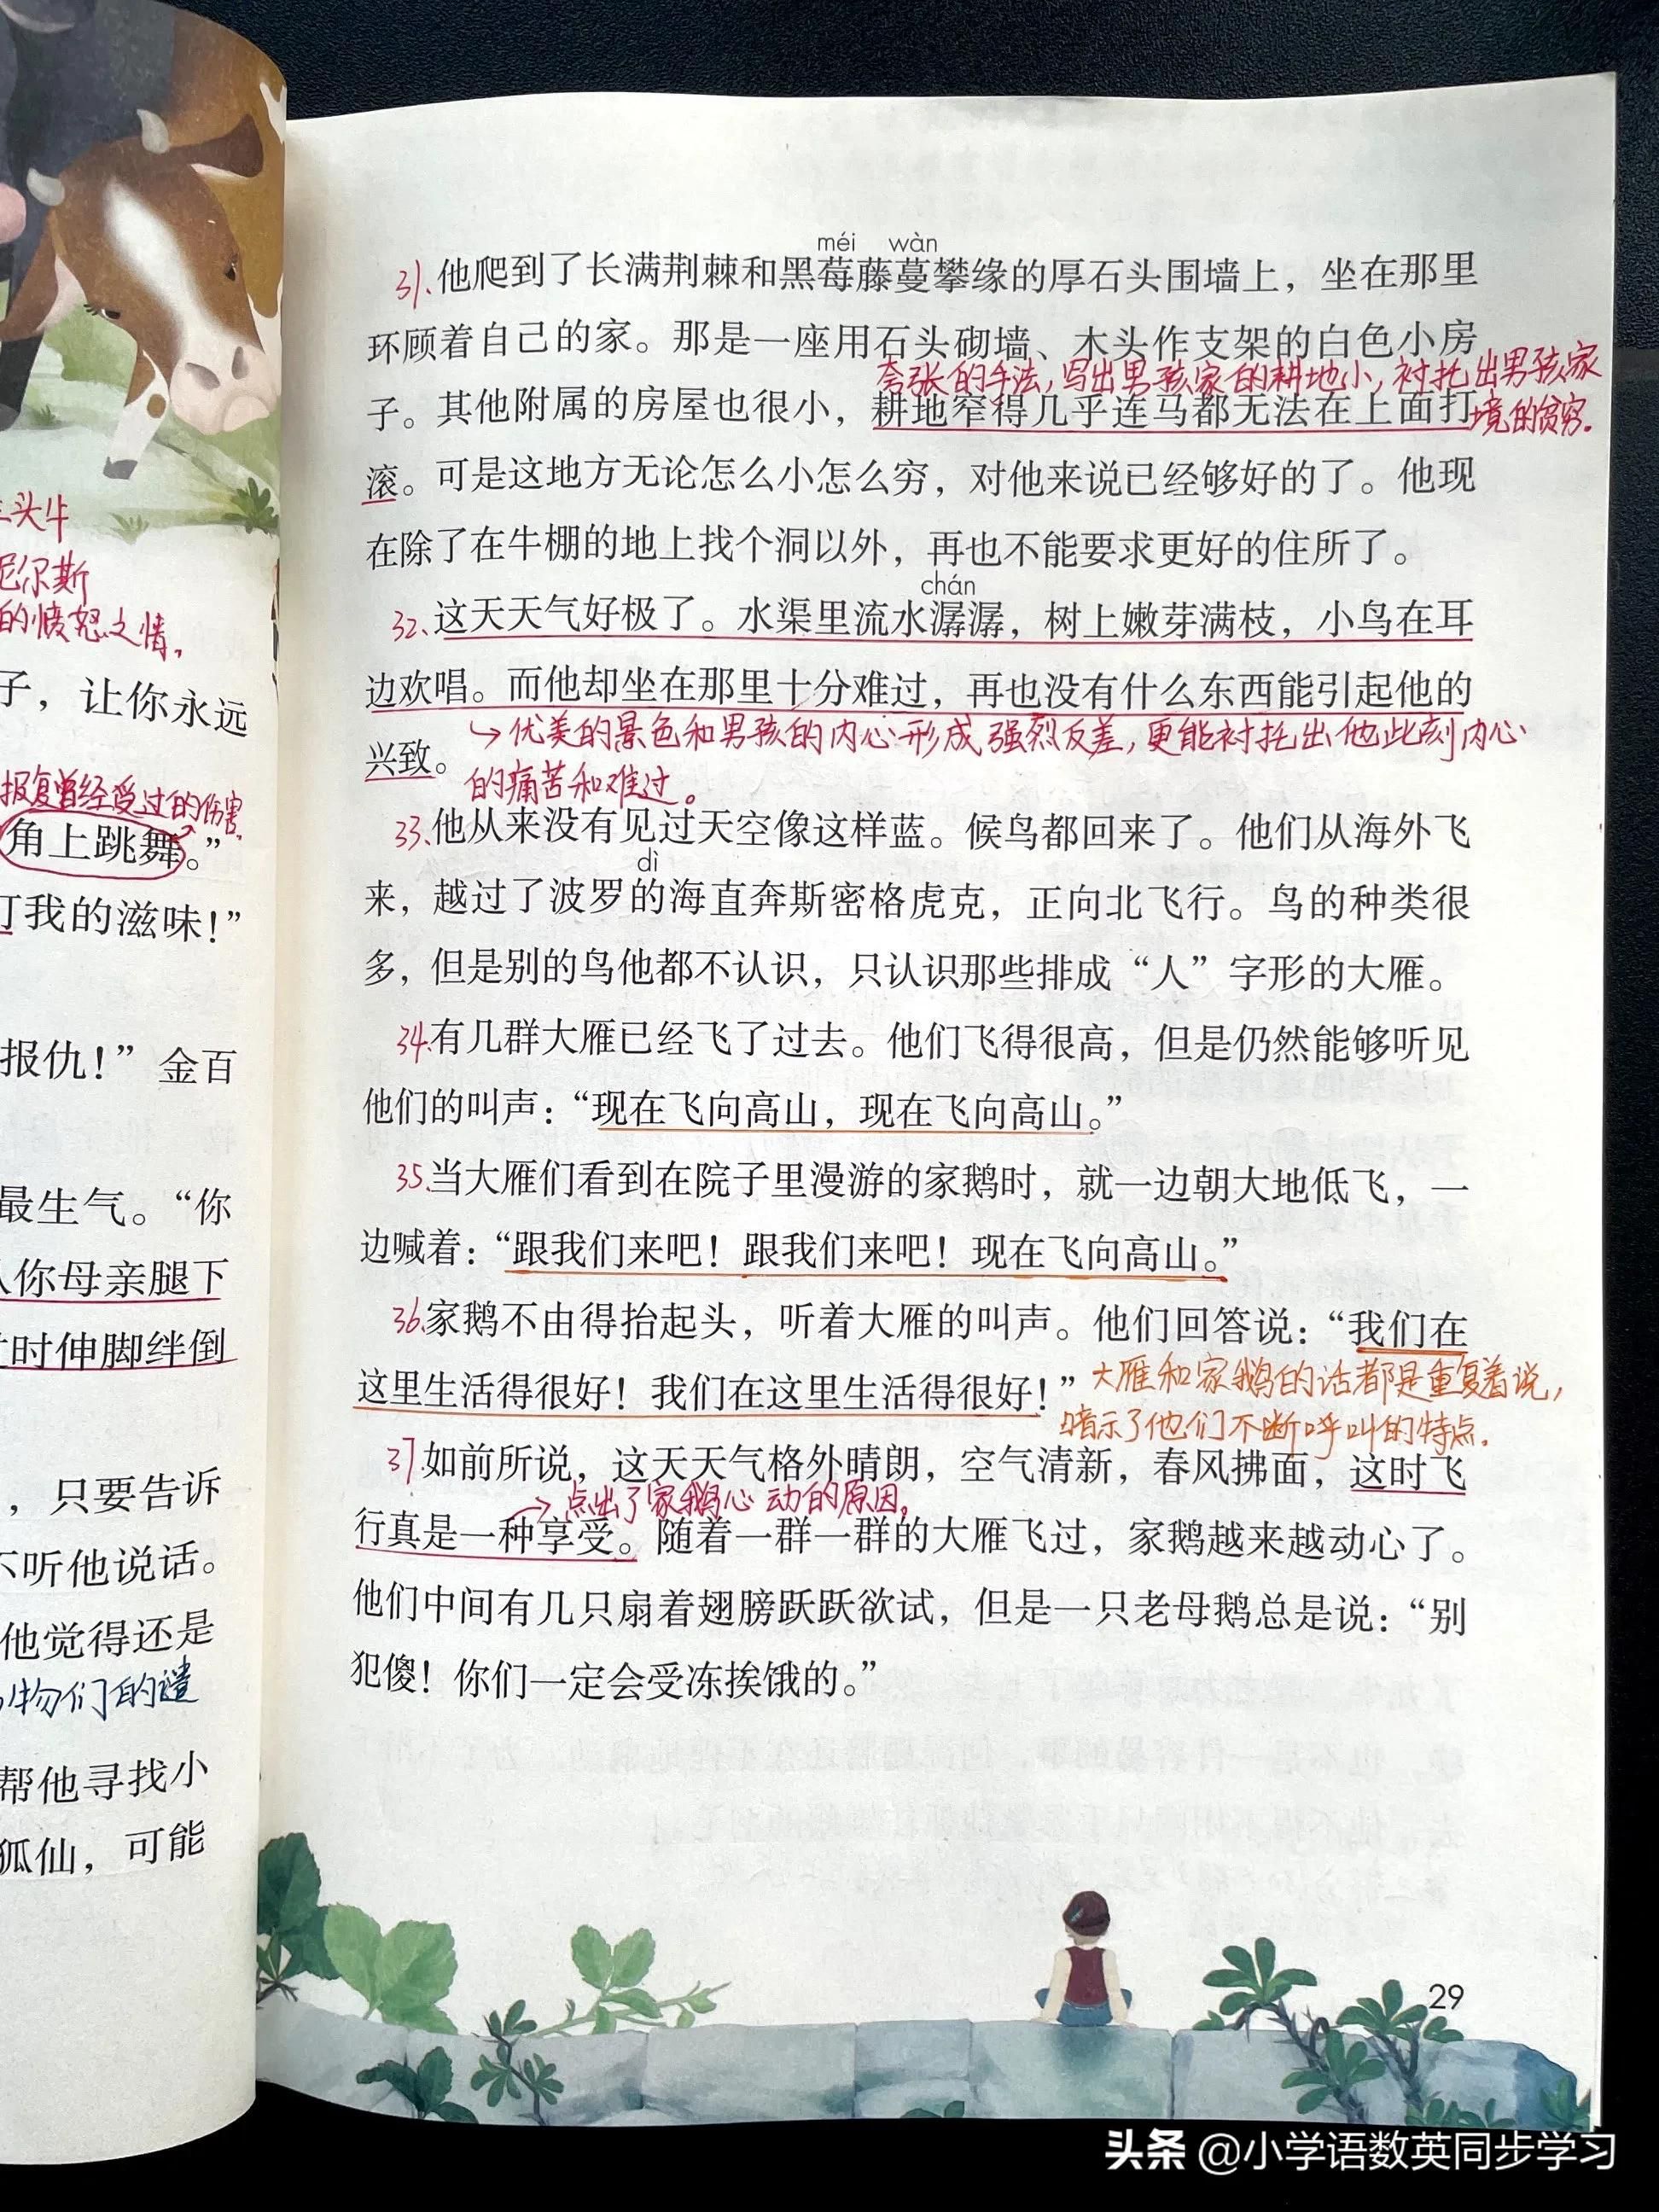 三头牛
尼尔斯
的愤怒之情。
子，让你永远
报复曾经受过的伤害。
角上跳舞。”
我的滋味！”
报仇！”金百
最生气。“你
你母亲腿下
时伸脚绊倒
，只要告诉
不听他说话。
他觉得还是
物们的谴
帮他寻找小
狐仙，可能
méi wàn
31.他爬到了长满荆棘和黑莓藤蔓攀缘的厚石头围墙上，坐在那里
环顾着自己的家。那是一座用石头砌墙、木头作支架的白色小房
夸张的手法，写出男孩家的耕地小，衬托出男孩家
子。其他附属的房屋也很小，耕地窄得几乎连马都无法在上面打
境的贫穷。
滚。可是这地方无论怎么小怎么穷，对他来说已经够好的了。他现
在除了在牛棚的地上找个洞以外，再也不能要求更好的住所了。
chán
32.这天天气好极了。水渠里流水潺潺，树上嫩芽满枝，小鸟在耳
边欢唱。而他却坐在那里十分难过，再也没有什么东西能引起他的
→优美的景色和男孩的内心形成强烈反差，更能衬托出他此刻内心
兴致。
的痛苦和难过。
33.他从来没有见过天空像这样蓝。候鸟都回来了。他们从海外飞
dì
来，越过了波罗的海直奔斯密格虎克，正向北飞行。鸟的种类很
多，但是别的鸟他都不认识，只认识那些排成“人”字形的大雁。
34.有几群大雁已经飞了过去。他们飞得很高，但是仍然能够听见
他们的叫声：“现在飞向高山，现在飞向高山。”
35.当大雁们看到在院子里漫游的家鹅时，就一边朝大地低飞，一
边喊着：“跟我们来吧！跟我们来吧！现在飞向高山。”
36.家鹅不由得抬起头，听着大雁的叫声。他们回答说：“我们在
这里生活得很好！我们在这里生活得很好！”
大雁和家鹅的话都是重复着说，
暗示了他们不断呼叫的特点。
37.如前所说，这天天气格外晴朗，空气清新，春风拂面，这时飞
→点出了家鹅心动的原因。
行真是一种享受。随着一群一群的大雁飞过，家鹅越来越动心了。
他们中间有几只扇着翅膀跃跃欲试，但是一只老母鹅总是说：“别
犯傻！你们一定会受冻挨饿的。”
29
头条 @小学语数英同步学习